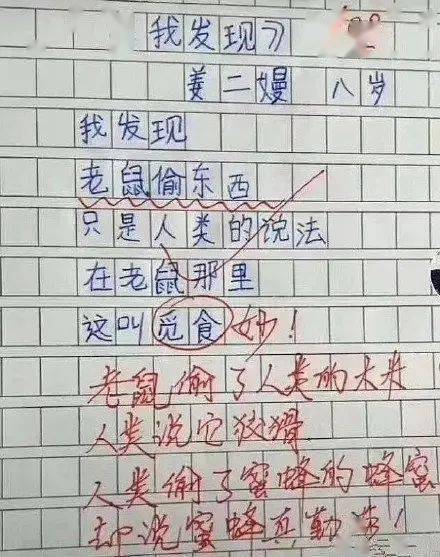 我发现》
姜二嫚 八岁
我发现
老鼠偷东西
只是人类的说法
在老鼠那里
这叫觅食 妙！
老鼠偷了人类的大米
人类说它狡猾
人类偷了蜜蜂的蜂蜜
却说蜜蜂真勤劳！